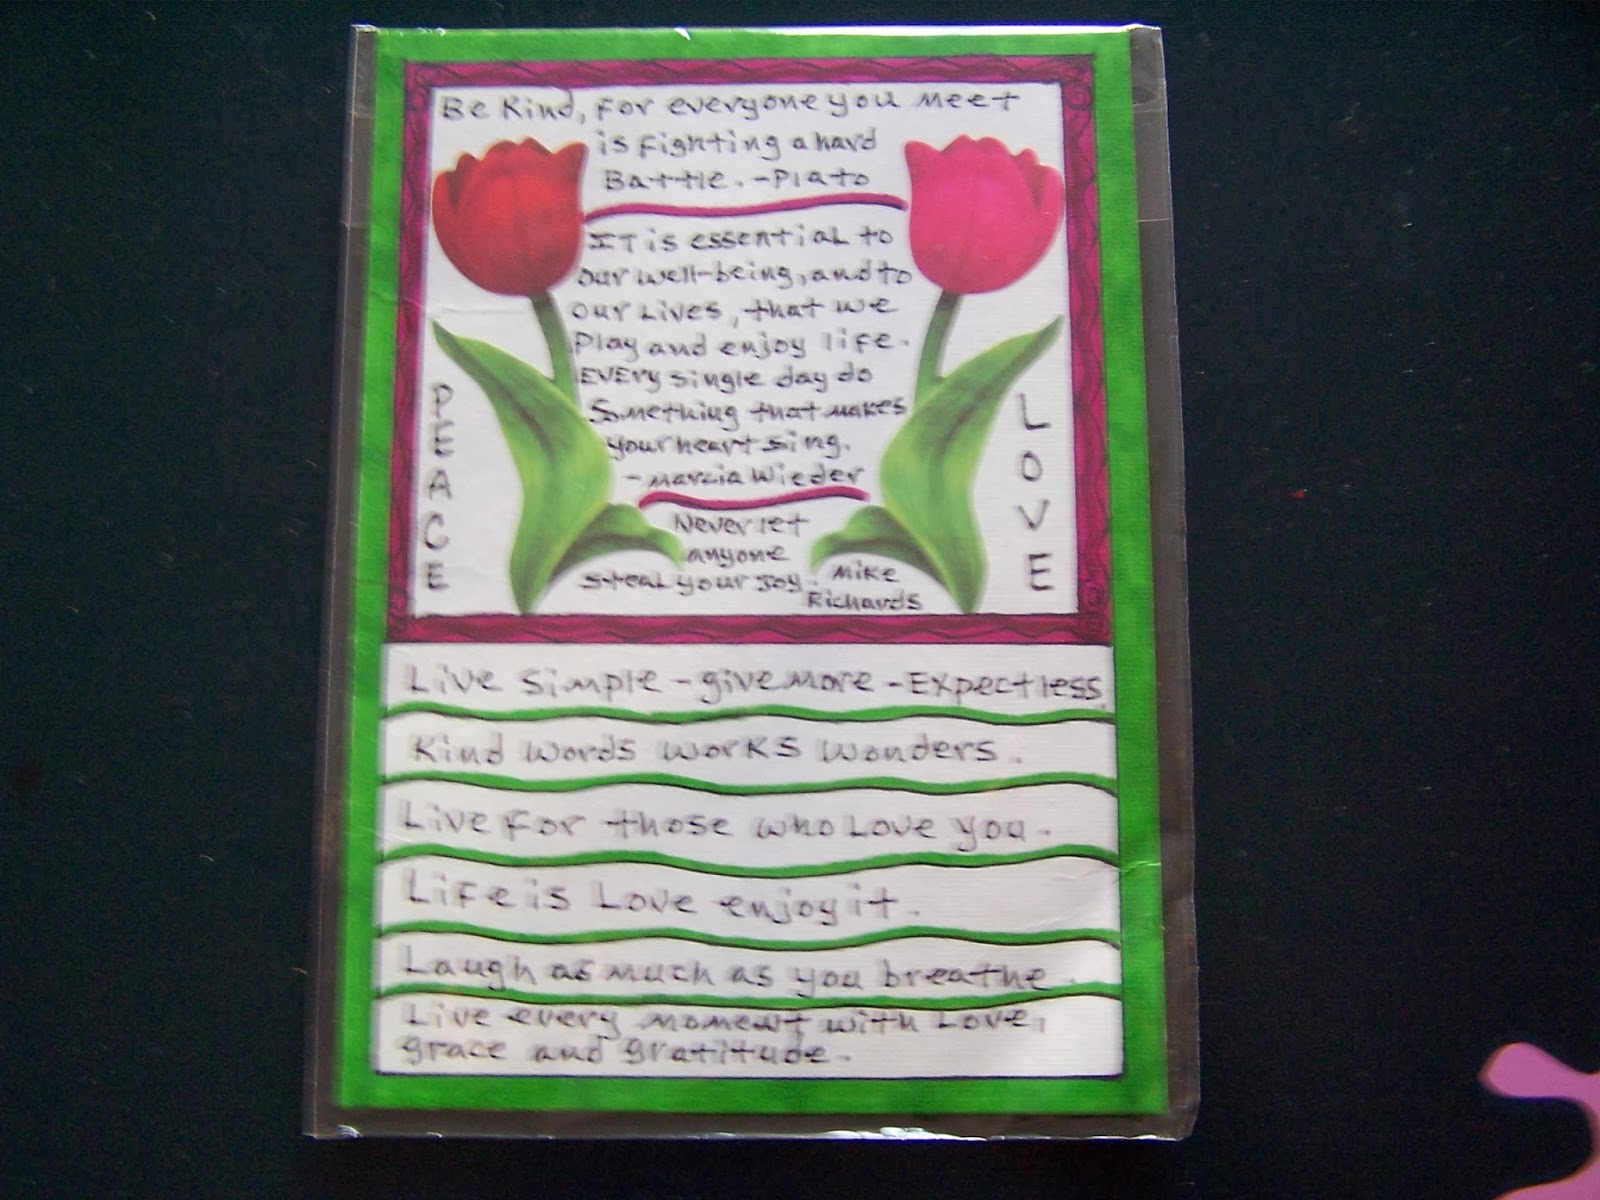 Be Kind, For everyone you meet
is Fighting a hard
Battle. -Plato
IT is essential to
our well-being, and to
our Lives, that we
Play and enjoy life.
EVEry single day do
Something that makes
your heart sing.
- Marcia Wieder
Never let
anyone
steal your Joy. Mike
Richards
PEACE
LOVE
Live Simple - give more - Expect less.
Kind words works wonders.
Live For those who Love you.
Life is Love enjoy it.
Laugh as much as you breathe.
Live every moment with Love,
grace and gratitude.